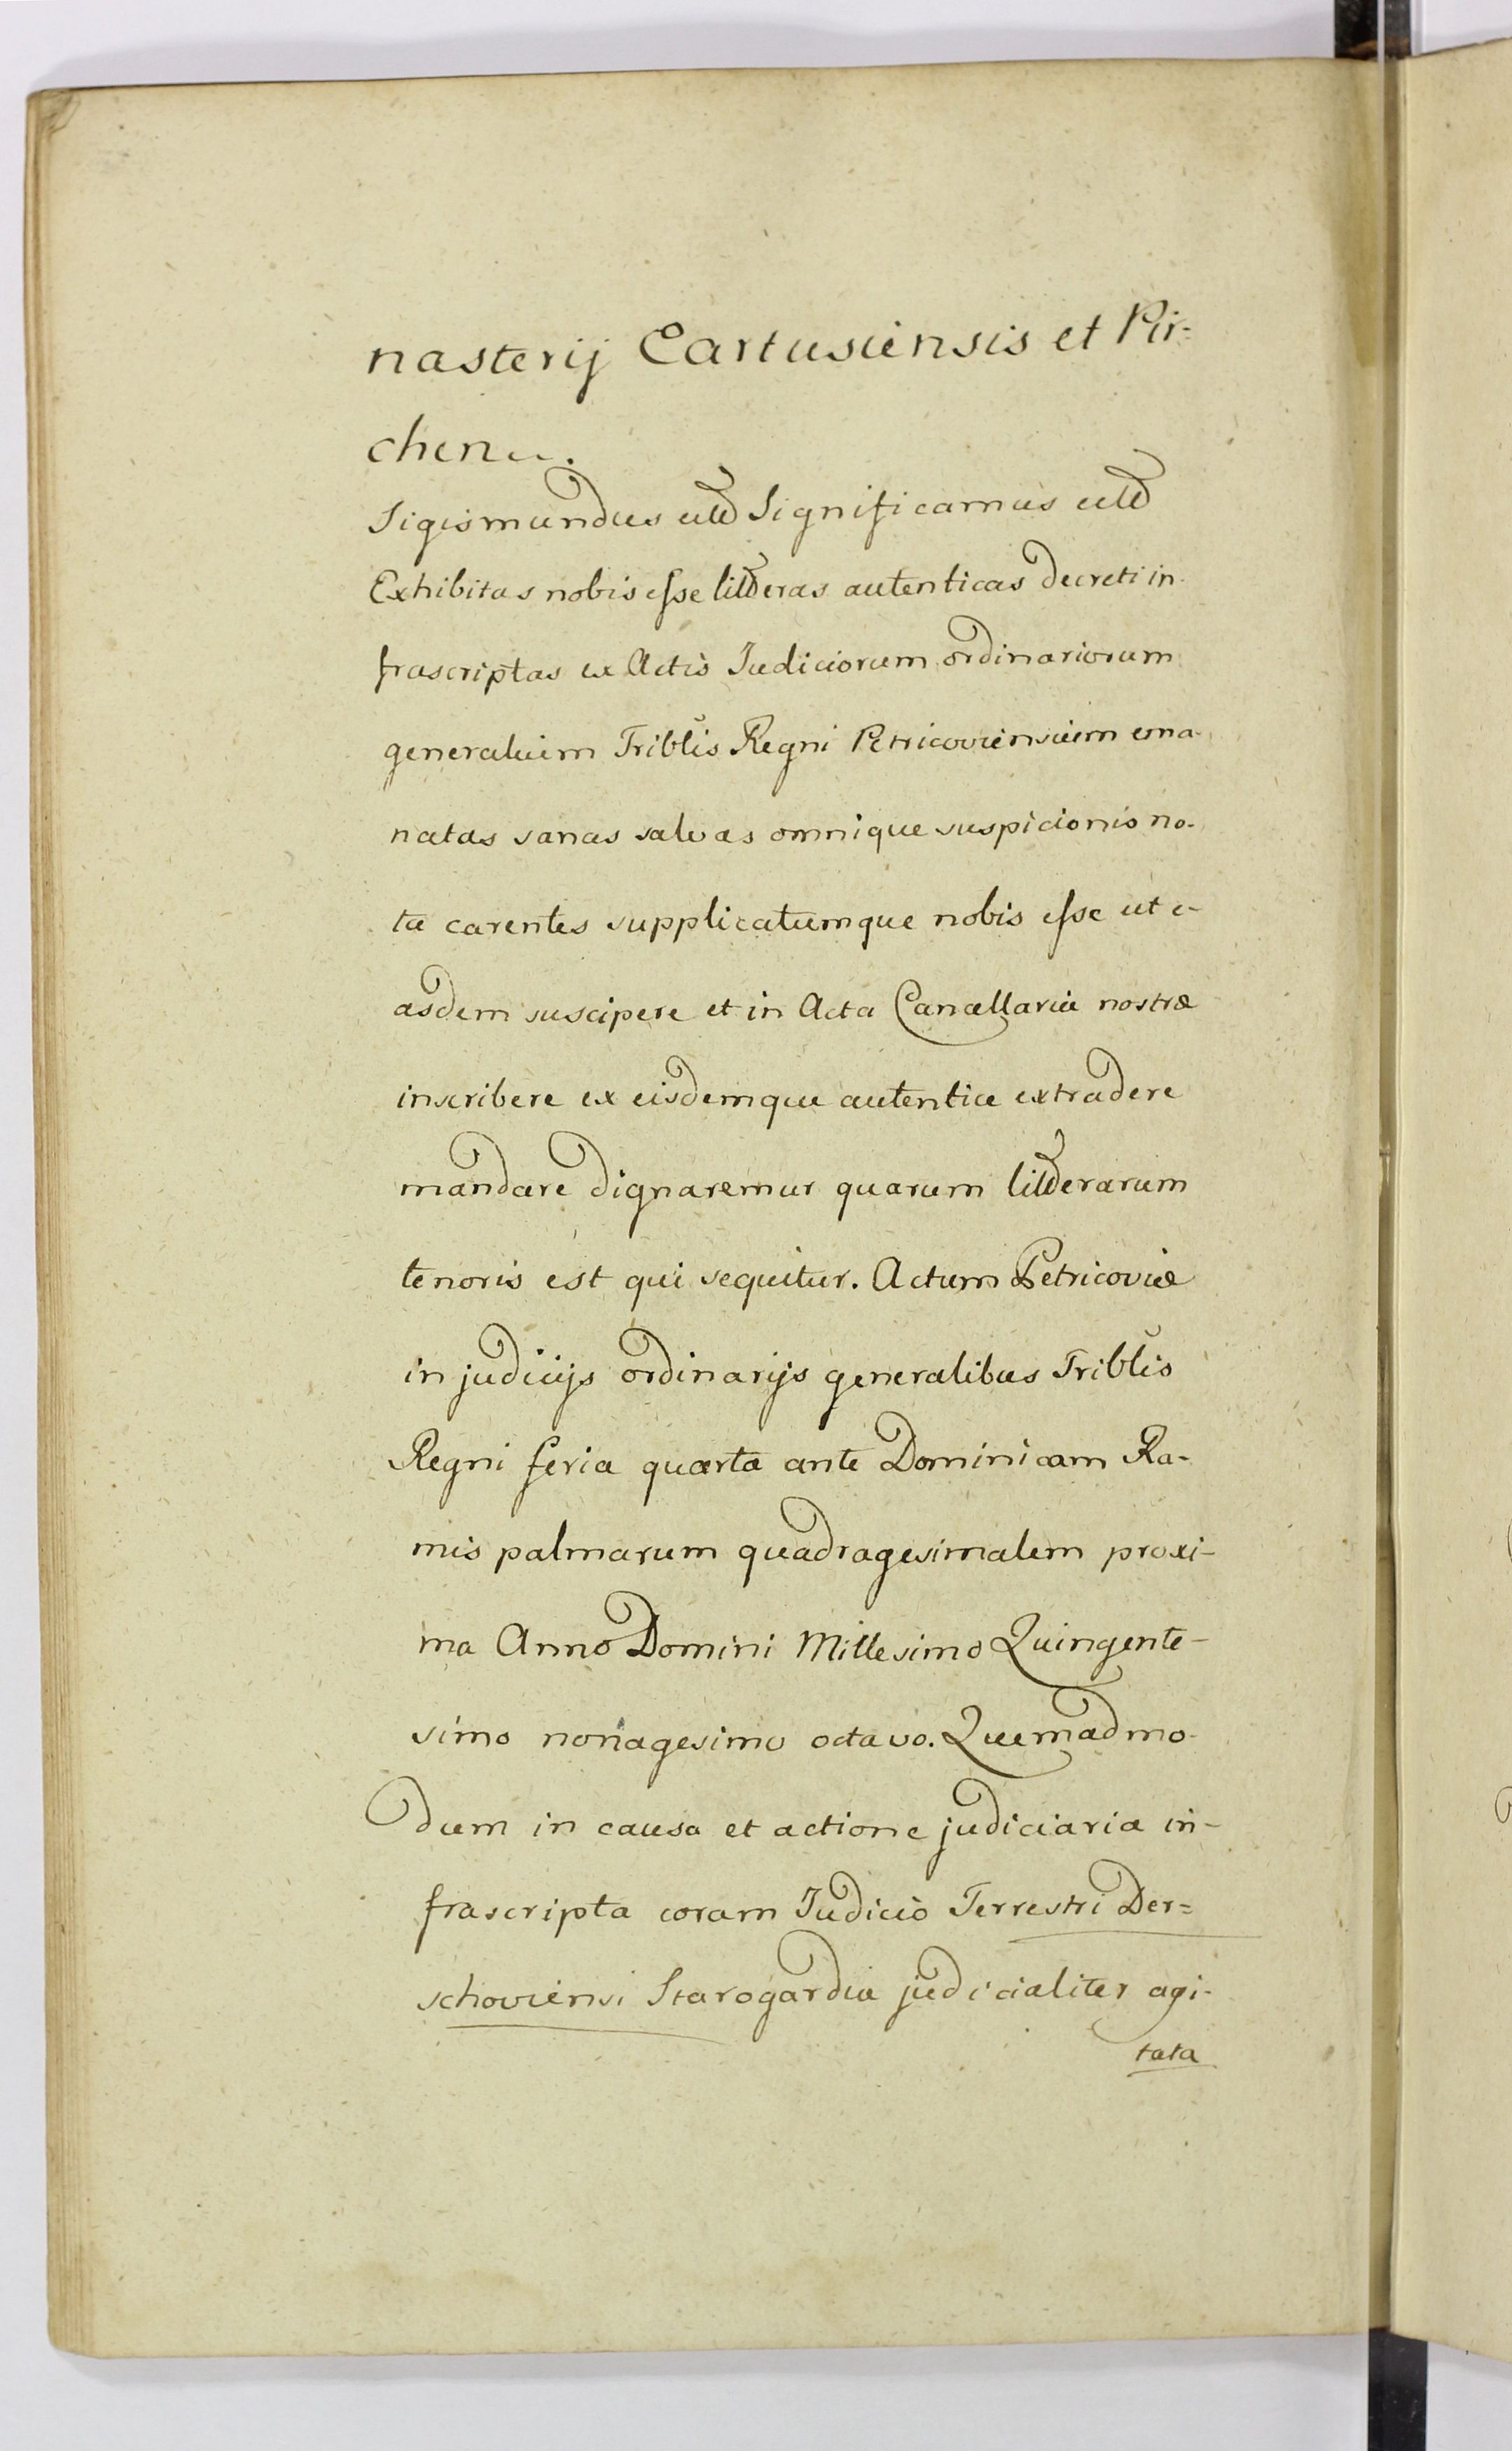 nasterij Cartusiensis et Pir=
chen.
Sigismundus etc Significamus etc
Exhibitas nobis esse litteras autenticas decreti in-
frascriptas ex Actis Judiciorum ordinariorum
generalium Triblis Regni Petricoviensium ema-
natas sanas salvas omnique suspicionis no-
ta carentes supplicatumque nobis esse ut e-
asdem suscipere et in Acta Cancellariæ nostræ
inscribere ex eisdemque autentice extradere
mandare dignaremur quarum litterarum
tenoris est qui sequitur. Actum Petricoviæ
in judicijs ordinarijs generalibus Triblis
Regni feria quarta ante Dominicam Ra-
mis palmarum quadragesimalem proxi-
ma Anno Domini Millesimo Quingente-
simo nonagesimo octavo. Quemadmo-
dum in causa et actione judiciaria in-
frascripta coram Judicio Terrestri Der=
schoviensi Starogardiæ judicialiter agi-
tata